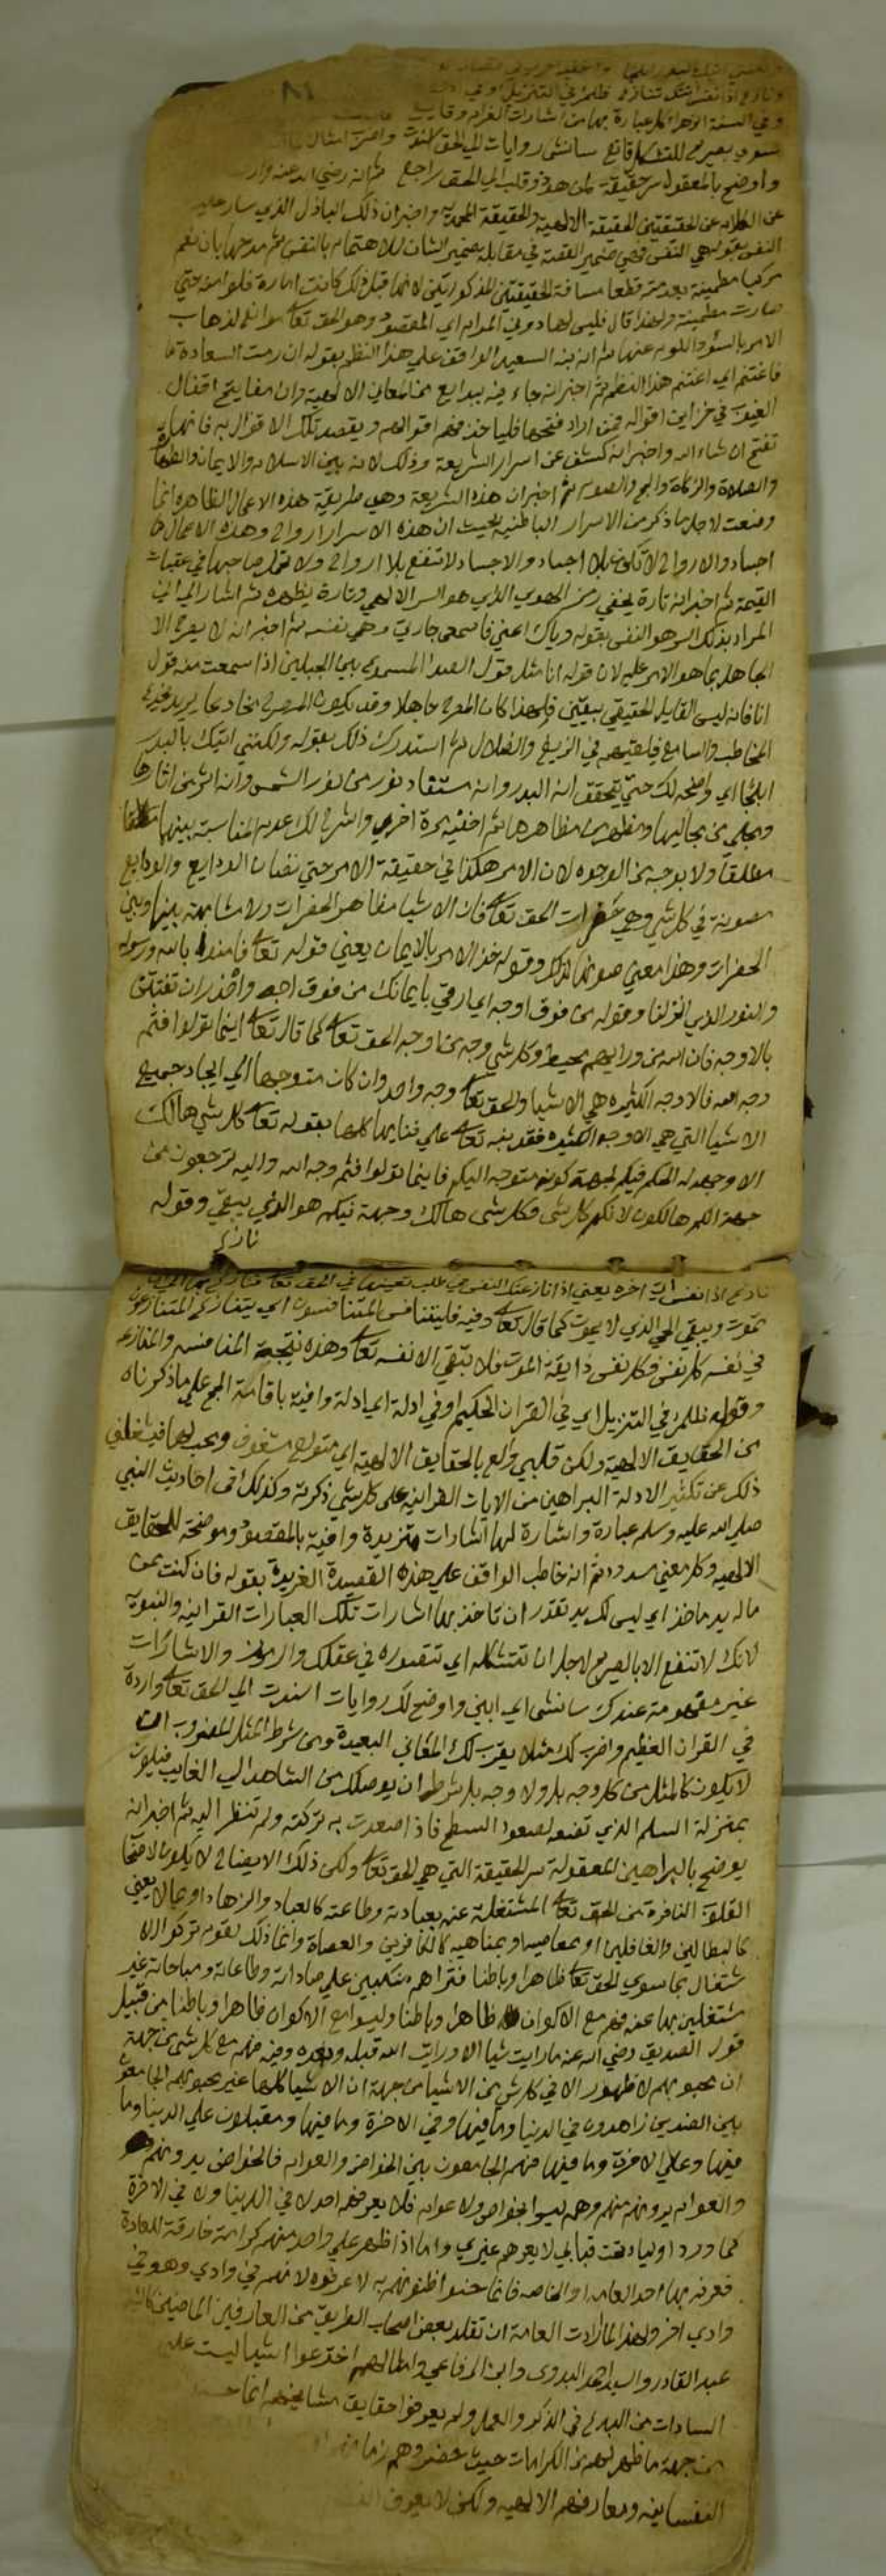 ونازع اذا نفس اتتك تنازع ظلمن في التنزيل او في
وفي السنة الزهراء كل عبارة بها من اشارات الغرام وقايع
سوى بصريح للتشكل قانع سانشى روايات الى الحق اسندت واضرب امثال
واوضح بالمعقول سر حقيقة لمن هو ذو قلب الى الحق راجع ثم انه رضي الله عنه
عن الكلام عن الحقيقتين الحقيقة الالهية والحقيقة المحمدية واخبر ان ذلك الباذل الذي سار عليه
النفس بقوله هي النفس فهي ضمير القصة في مقابلة ضمير الشان للاهتمام بالنفس ثم مدحها بان نعم
مركبا مطمينة بعد قطعها مسافة الحقيقتين المذكورتين لانها قبل ذلك كانت امارة فلوامة حتى
صارت مطمينة ولهذا قال فليس لها دون المرام اي المقصود وهو الحق تعالى موانع لذهاب
الامر بالسوء واللوم عنها ثم انه نبه السعيد الواقف على هذا النظم بقوله ان رمت السعادة
فاغتنم اي اغتنم هذا النظم ثم اخبر انه جاء فيه ببدايع من المعاني الالهية وان مفاتيح اقفال
الغيوب في خزاين اقواله فمن اراد فتحها فلياخذ منهم اقوالهم ويقصد تلك الاقوال به فانها
تفتح ان شاء الله واخبر انه كشف عن اسرار الشريعة وذلك لانه بين الاسلام والايمان والطهارة
والصلاة والزكاة والحج والصوم ثم اخبر ان هذه الشريعة وهي طريقة هذه الاعمال الظاهرة انما
وضعت لاجل ما ذكر من الاسرار الباطنية بحيث ان هذه الاسرار ارواح وهذه الاعمال لها
اجساد والارواح لا تكون بلا اجساد والاجساد لا تنفع بلا ارواح ولا تحمل صاحبها في عقبات
القيمة ثم اخبر انه تارة يخفي رمز الهوى الذي هو السر الالهي وتارة يظهره ثم اشار الى ان
المراد بذلك السر هو النفس بقوله واياك اعني فاسمعي جارتي وهي نفسه ثم اخبر انه لا يصرح الا
الجاهل بما هو الامر عليه لان قوله انا مثل قول الصدا المسموع بين الجبلين اذا سمعت منه قول
انا فانه ليس القايل الحقيقي بيقين فلهذا كان المصرح جاهلا وقد يكون المصرح مخادعا يريد خديعة
المخاطب والسامع فيلقيهم في الزيغ والضلال ثم استدرك ذلك بقوله ولكنني اتيك بالبدر
ابلجا اي واضحه لك حتى تتحقق انه البدر وانه مستفاد نور من نور الشمس وانه اثر من اثارها
ومجلى من مجاليها ومظهر من مظاهرها ثم اخفيه مرة اخرى واشرح لك عدم المناسبة بينهما
مطلقا ولا بوجه من الوجوه لان الامر هكذا في حقيقة الامر حتى تصان الودايع والودايع
مصونة في كل شي وهي حضرات الحق تعالى فان الاشيا مظاهر الحضرات ولا مشابهة بينها وبين
الحضرات وهذا معنى صونها لذلك وقوله خذ الامر بالايمان يعني قوله تعالى فامنوا بالله ورسوله
والنور الذي انزلنا وقوله من فوق اوجه اي ارقى بايمانك من فوق اوجه واحذر ان تفتتن
بالاوجه فان الله من ورايهم محيط وكل شي وجه من اوجه الحق تعالى كما قال تعالى اينما تولوا فثم
وجه الله فالاوجه الكثيرة هي الاشيا والحق تعالى وجه واحد وان كان متوجها الى ايجاد جميع
الاشيا التي هي الاوجه الكثيرة فقد نبه تعالى على فنايها كلها بقوله تعالى كل شي هالك
الا وجهه له الحكم فيكم لجهة كونه متوجه اليكم فاينما تولوا فثم وجه الله واليه ترجعون من
جهة انكم هالكون لانكم كل شي فكل شي هالك وجهة فيكم هو الذي يبقى وقوله
نازع
نازع اذا نفس اتت الى اخره يعني اذا نازعتك النفس في طلب تعينها في الحق تعالى فنازعها
تموت ويبقى الحي الذي لا يموت كما قال تعالى وفيه فليتنافس المتنافسون اي يتنازع المتنازعون
في نفسه كل نفس فكل نفس ذايقة الموت فلا تبقى الا نفسه تعالى وهذه نتيجة المنافسة والمنازعة
وقوله ظلمن في التنزيل اي في القران الحكيم او في ادلة اي ادلة وافية باقامة الحجج على ما ذكرناه
من الحقايق الالهية ولكن قلبي والع بالحقايق الالهية اي متولع مشغوف ومحب لها فيشغلني
ذلك عن تكثير الادلة البراهين من الايات القرانية على كل شي ذكرته وكذلك في احاديث النبي
صلى الله عليه وسلم عبارة واشارة لها اشارات متزيدة وافية بالمقصود وموضحة للحقايق
الالهية وكل معنى مسدود ثم انه خاطب الواقف على هذه القصيدة الغريدة بقوله فان كنت ممن
ماله يد ماخذ اي ليس لك يد تقدر ان تاخذ بها اشارات تلك العبارات القرانية والنبوية
لانك لا تنتفع الا بالصريح لاجل ان تتشكله اي تتصوره في عقلك والرموز والاشارات
غير مفهومة عندك سانشى اي ابني واوضح لك روايات اسندت الى الحق تعالى واردة
في القران العظيم واضرب لك مثلا يقرب لك المعاني البعيدة ومن شرط المثل المضروب ان
لا يكون كالمثل من كل وجه بل ولا وجه بل شرطه ان يوصلك من الشاهد الى الغايب فيكون
بمنزلة السلم الذي تضعه لصعود السطح فاذا صعدت به تركته ولم تنظر اليه ثم اخبر انه
يوضح بالبراهين المعقولة سر الحقيقة التي هي الحق تعالى ولكن ذلك الايضاح لا يكون لاصحاب
القلوب النافرة من الحق تعالى المشتغلة عنه بعبادته وطاعته كالعباد والزهاد او
كالبطالين والغافلين او بمعاصيه او بمناهيه كالكافرين والعصاة وانما ذلك لقوم تركوا الا
شتغال بما سوى الحق تعالى ظاهرا وباطنا فتراهم منكبين على عباداته وطاعاته ومباحاته غير
مشتغلين بها عنه فهم مع الاكوان ظاهرا وباطنا وليسوا مع الاكوان ظاهرا وباطنا من قبيل
قول الصديق رضي الله عنه ما رايت شيا الا ورايت الله قبله وبعده وفيه فهم مع كل شي من جهة
ان محبوبهم لا ظهور الا في كل شي من الاشيا من جهة ان الاشيا كلها غير محبوبهم الجامعون
بين الضدين زاهدون في الدنيا وما فيها وفي الاخرة وما فيها ومقبلون على الدنيا وما
فيها وعلى الاخرة وما فيها فهم الجامعون بين الخواص والعوام فالخواص يدرونهم
والعوام يرونهم منهم وهم ليسوا بخواص ولا عوام فلا يعرفهم احد لا في الدنيا ولا في الاخرة
كما ورد اوليا تحت قبابي لا يعرفهم غيري واما اذا ظهر على واحد منهم كرامة خارقة للعادة
فعرفه بها احد العامة او الخاصة فانما حسنوا ظنونهم به لا عرفوه لانهم في وادي وهو في
وادي اخر ولهذا لما ارادت العامة ان تقلد بعض اصحاب الطريق من العارفين الماضين كالشيخ
عبد القادر والسيد احمد البدوي وابن الرفاعي وامثالهم اخترعوا اشيا ليست على
السادات من البدع في الذكر والعمل ولم يعرفوا حقايق مشايخهم انما
من جهة ما ظهر لهم من الكرامات حيث حضروهم
النفسانية ومعارفهم الالهية ولكن لا يعرف